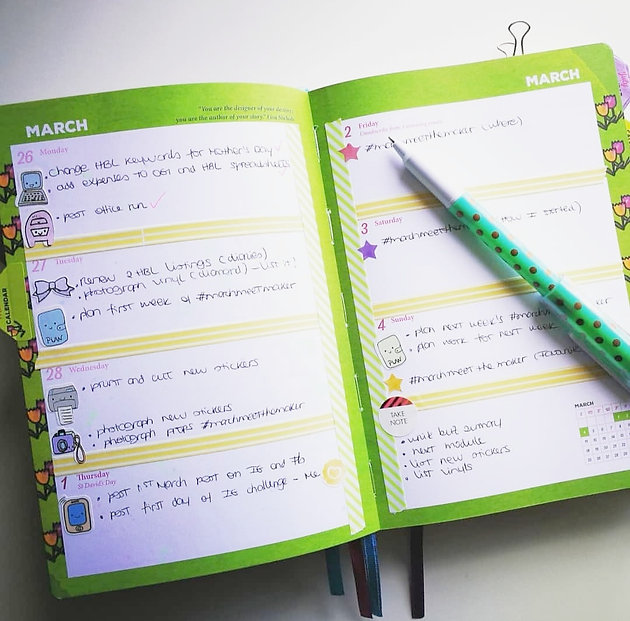 MARCH
"You are the designer of your destiny,
you are the author of your story." Lisa Nichols
26 Monday
• change HBL keywords for Mother's Day ✓
• add expenses to OGI and HBL spreadsheets
• post office run ✓
27 Tuesday
• renew 2 HBL listings (diaries)
• photograph vinyl (diamond) - list it!
• plan first week of #marchmeetmaker
PLAN
28 Wednesday
• print and cut new stickers
• photograph new stickers
• photograph props #marchmeetthemaker
1 Thursday
St David's Day
• post 1st March post on IG and Fb
• post first day of IG challenge - Me
CALENDAR
MARCH
2 Friday
(where)
3 Saturday
#marchmeetthe How I started)
4 Sunday
• plan next week's #marchm maker
• plan work for next week
PLAN
#marchmeet the maker
TAKE
NOTE
• unit but summary
• next module
• list new stickers
• list vinyls
MARCH